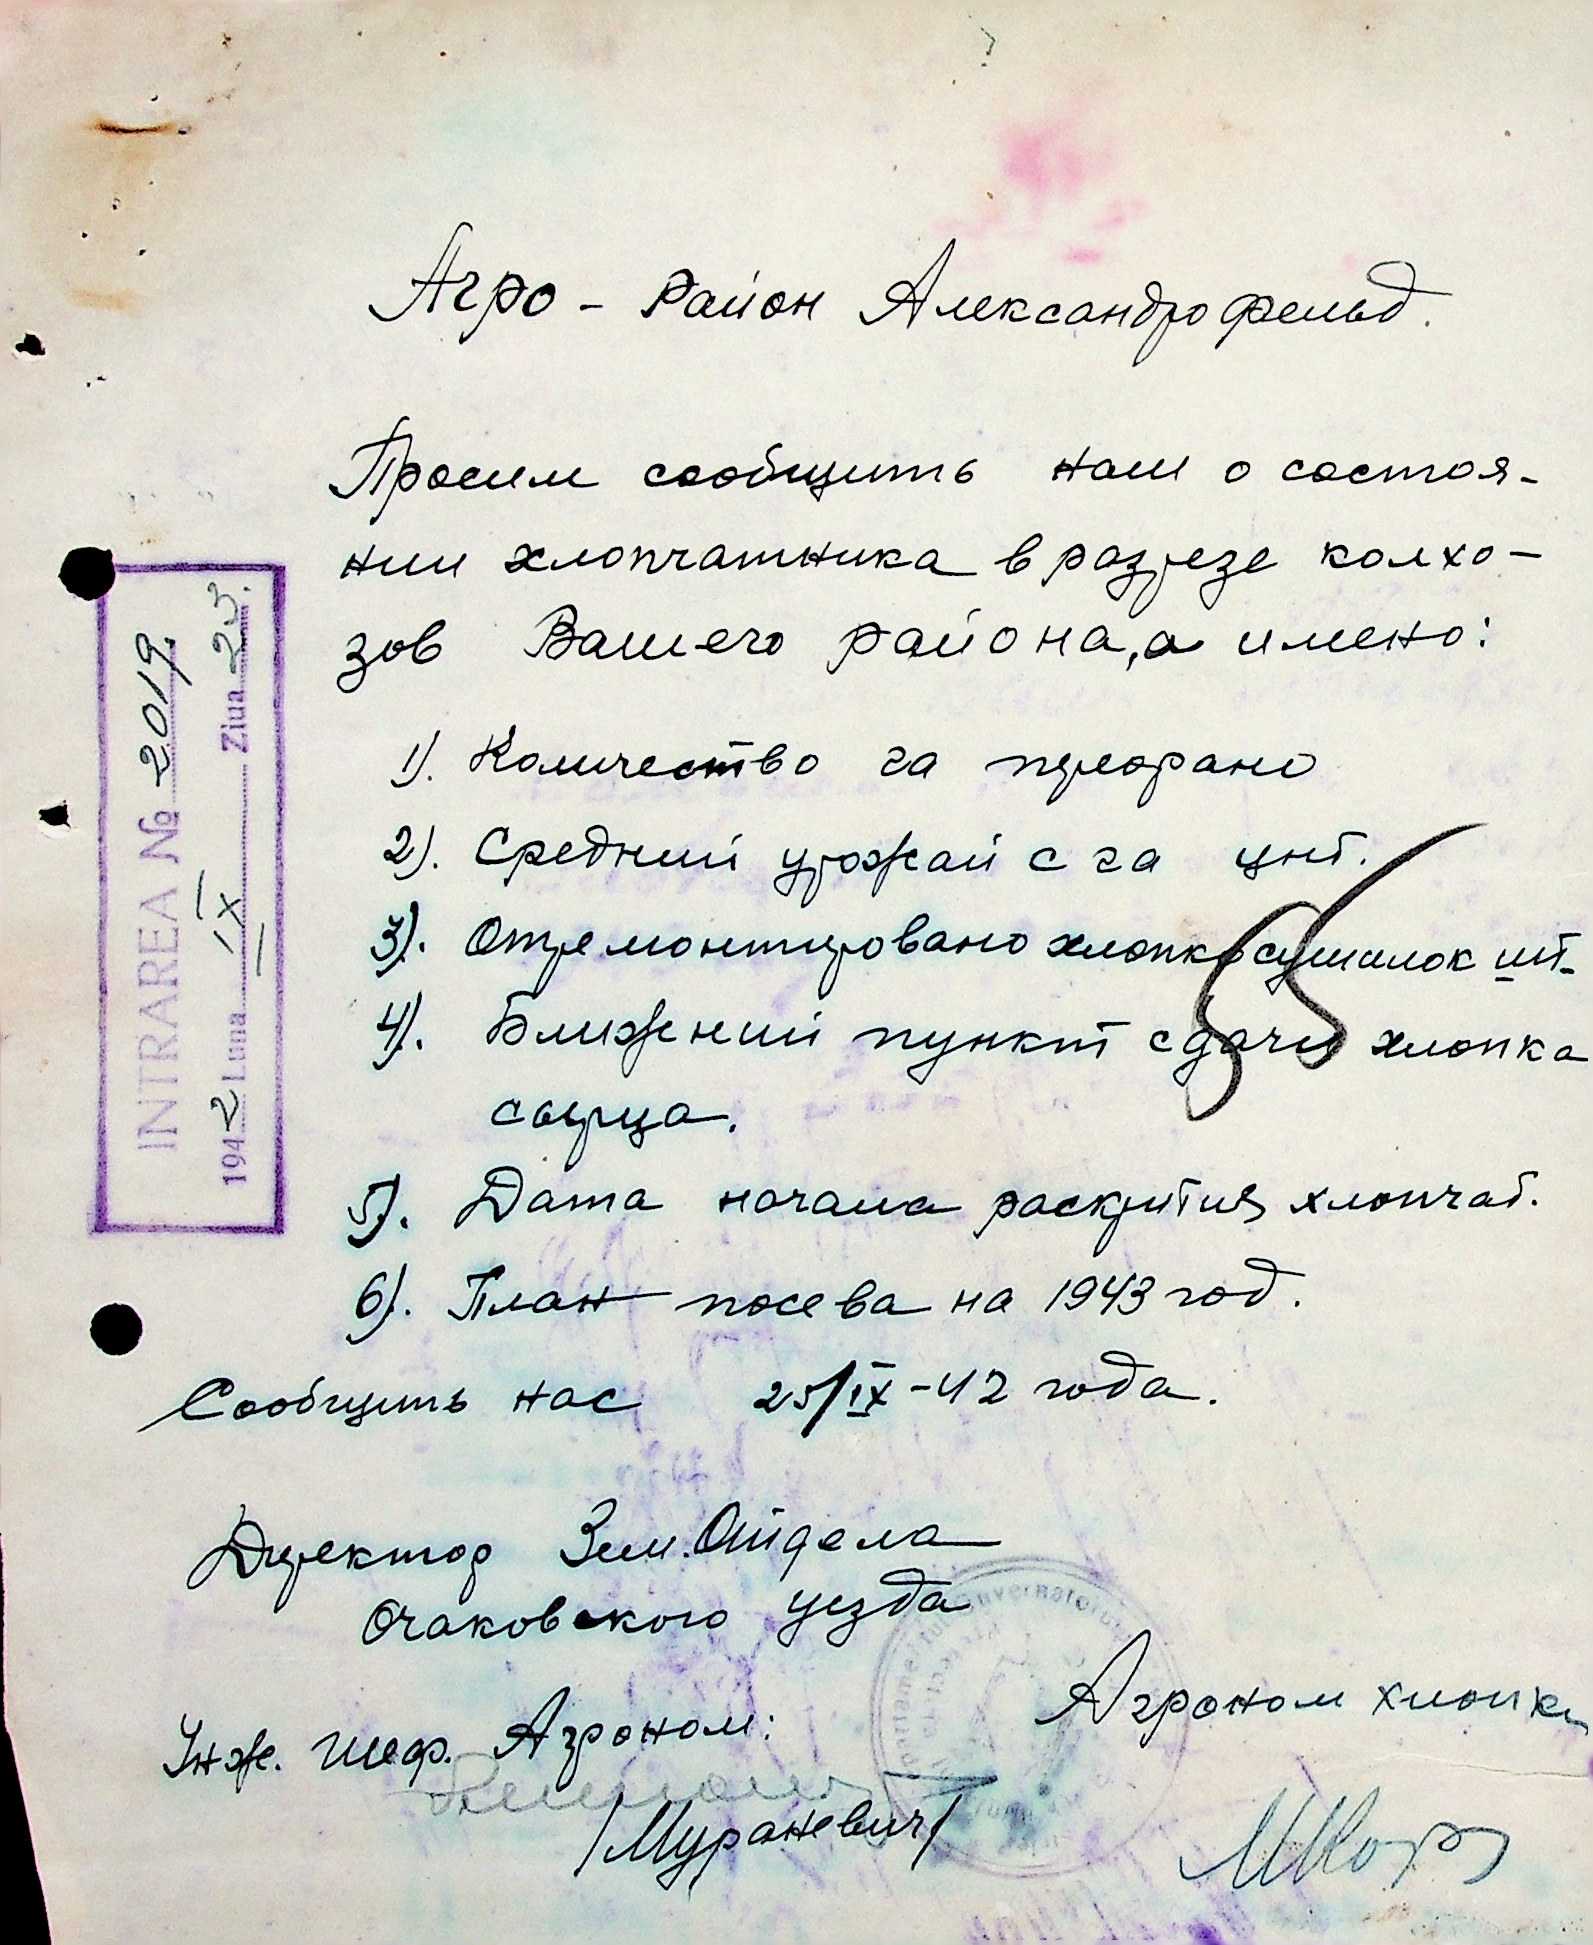 Агро - Район Александрофельд.
Просим сообщить нам о состоя-
нии хлопчатника в разрезе колхо-
зов Вашего района, а имено:
1). Количество га прорано
2). Средний урожай с га цнт.
3). Отремонтировано хлопкосушилок шт.
4). Ближений пункт сдачи хлопка
сырца.
5). Дата начала раскрития хлопчат.
6). План посева на 1943 год.
Сообщить нас 25/IX-42 года.
Директор Зем. Отдела
Очаковского уезда
Инж. Шеф. Агроном:
/Мураневич/
Агроном хлопка
INTRAREA № 2019.
1942 Luna IX Ziua 23.